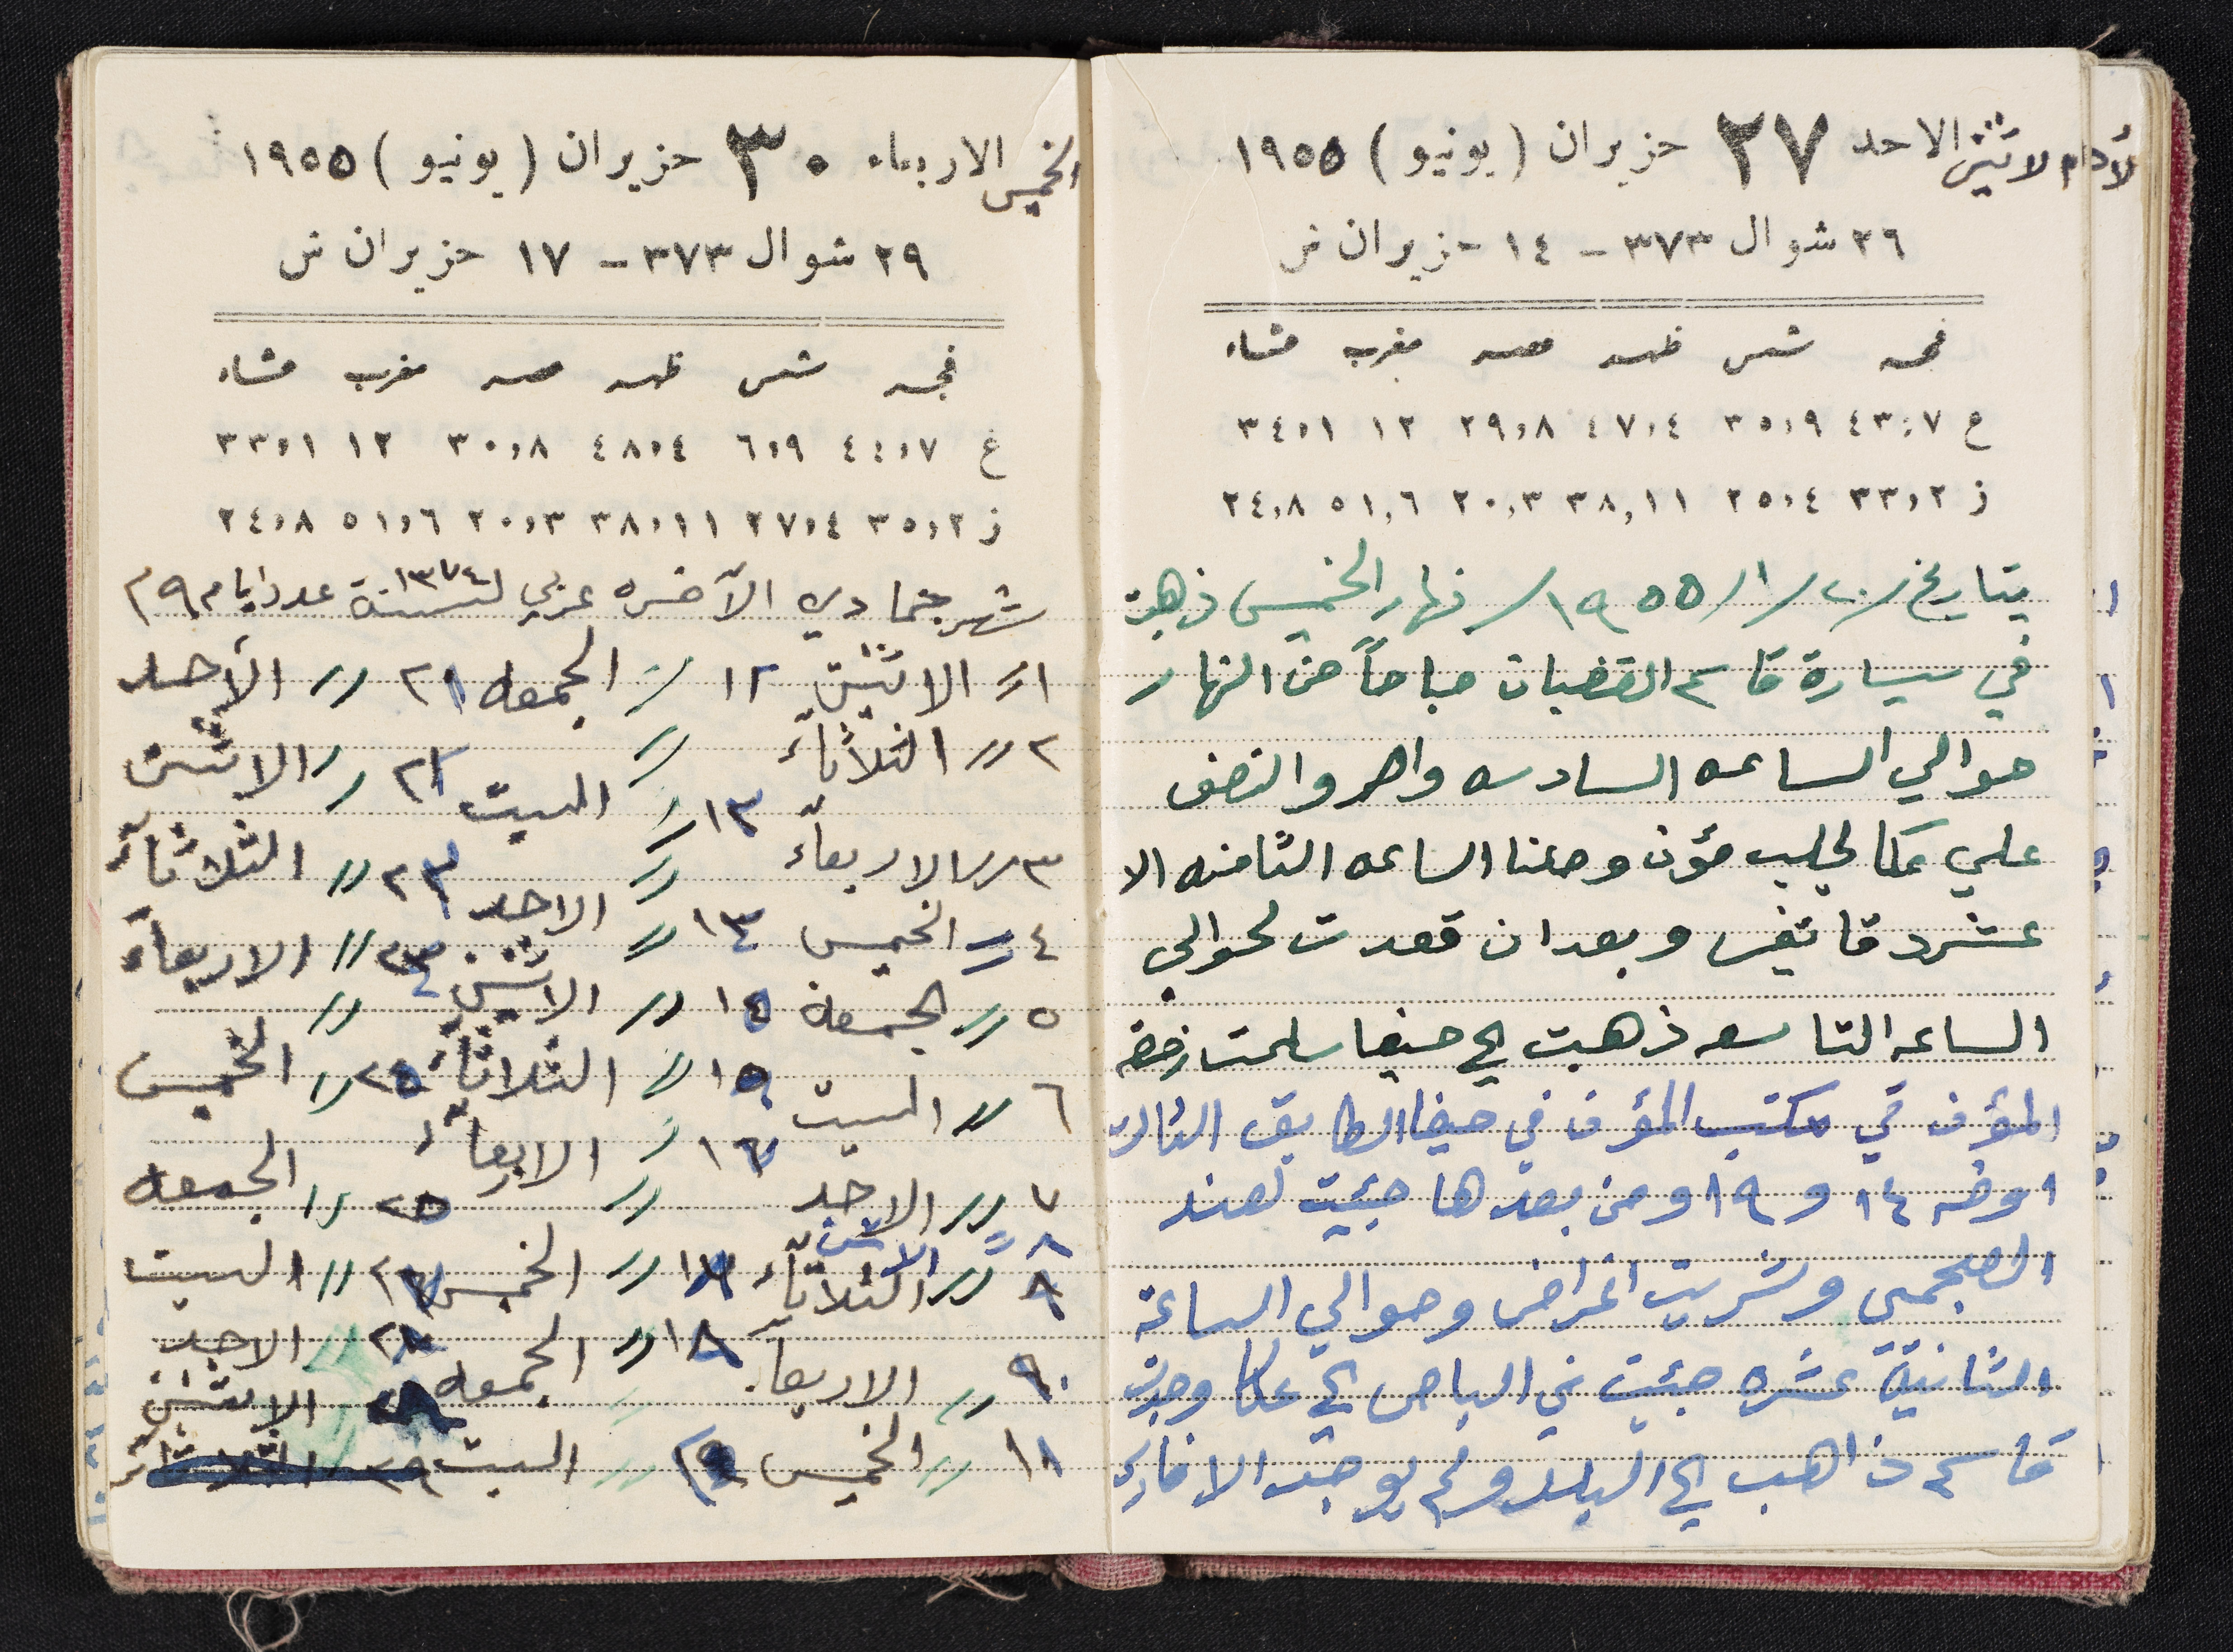 الاثنين الاحد ٢٧ حزيران (يونيو) ١٩٥٥
٢٦ شوال ٣٧٣ - ١٤ حزيران ش
فجر شمس ظهر عصر مغرب عشاء
غ ٤٣,٧ ٣٥,٩ ٤٧,٤ ٢٩,٨ ١٢ ٣٤,١
ز ٣٣,٢ ٢٥,٤ ٣٨,١١ ٢٠,٣ ٥١,٦ ٢٤,٨
بتاريخ ٢٠/١/١٩٥٥/ نهار الخميس ذهبت
في سيارة قاسم القضبان صباحاً من النهار
حوالي الساعه السادسه واحر والنصف
علي عكا لجلب مؤن وصلنا الساعه الثامنه الا
عشر دقائيق وبعد ان قعدت لحوالي
الساعه التاسعه ذهبت الى حيفا سلمت رخصة
المؤن في مكتب المؤن في حيفا الطابق الثالث
اوضه ١٤ و ١٩ ومن بعدها جئيت لعند
العجمي وشريت اغراض وحوالي الساعة
الثانية عشره جئيت في الباص الى عكا وجدت
قاسم ذاهب الى البلد ولم يوجد الا فايز
الخميس الاربعاء ٣٠ حزيران (يونيو) ١٩٥٥
٢٩ شوال ٣٧٣ - ١٧ حزيران ش
فجر شمس ظهر عصر مغرب عشاء
غ ٤٤,٧ ٦,٩ ٤٨,٤ ٣٠,٨ ١٢ ٣٣,١
ز ٣٥,٢ ٢٧,٤ ٣٨,١١ ٢٠,٣ ٥١,٦ ٢٤,٨
شهر جمادي الآخره عربي لسنة ١٣٧٤ عدد ايام ٢٩
١〃 الاثنين ١٢ 〃 الجمعه ٢١ 〃 الأحد
٢ 〃 الثلاثآء ١٣ 〃 السبت ٢٢ 〃 الاثنين
٣ 〃 الاربعآء 〃 الاحد ٢٣ 〃 الثلاثآء
٤ 〃 الخميس ١٤ 〃 الاثنين ٢٤ 〃 الاربعآء
٥ 〃 الجمعة ١٥ 〃 الثلاثآء ٢٥ 〃 الخميس
٦ 〃 السبت 〃 الاربعآء 〃 الجمعه
٧ 〃 الاحد 〃 الخميس 〃 السبت
٨ 〃 الاثنين
〃 الثلاثآء ١٨ 〃 الجمعه 〃 الاحد
〃 الاربعآء 〃 السبت 〃 الاثنين
〃 الخميس